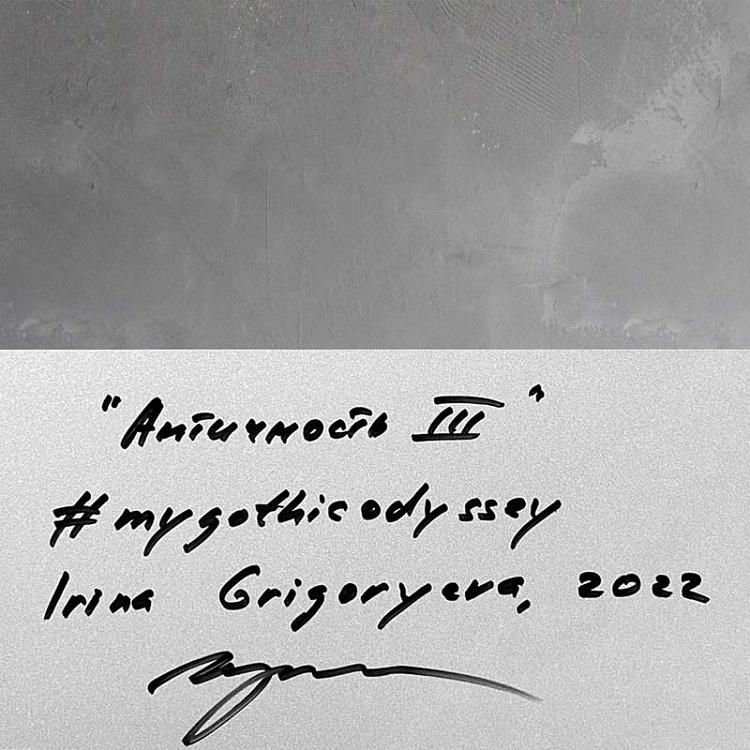 "Античность III"
#mygothicodyssey
Irina Grigoryeva, 2022